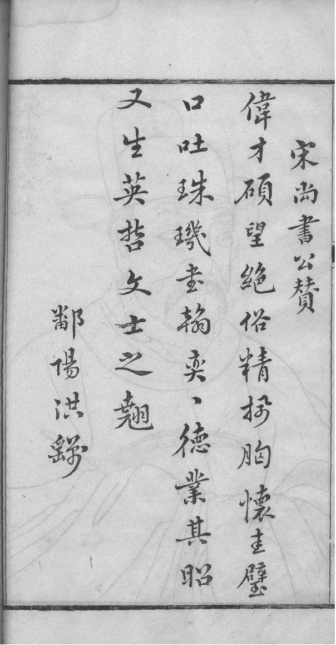 宋尚書公贊
偉才碩望絶俗精㧞胸懷圭璧
口吐珠璣書翰奕〻德業其昭
又生英哲文士之翹
鄱陽洪